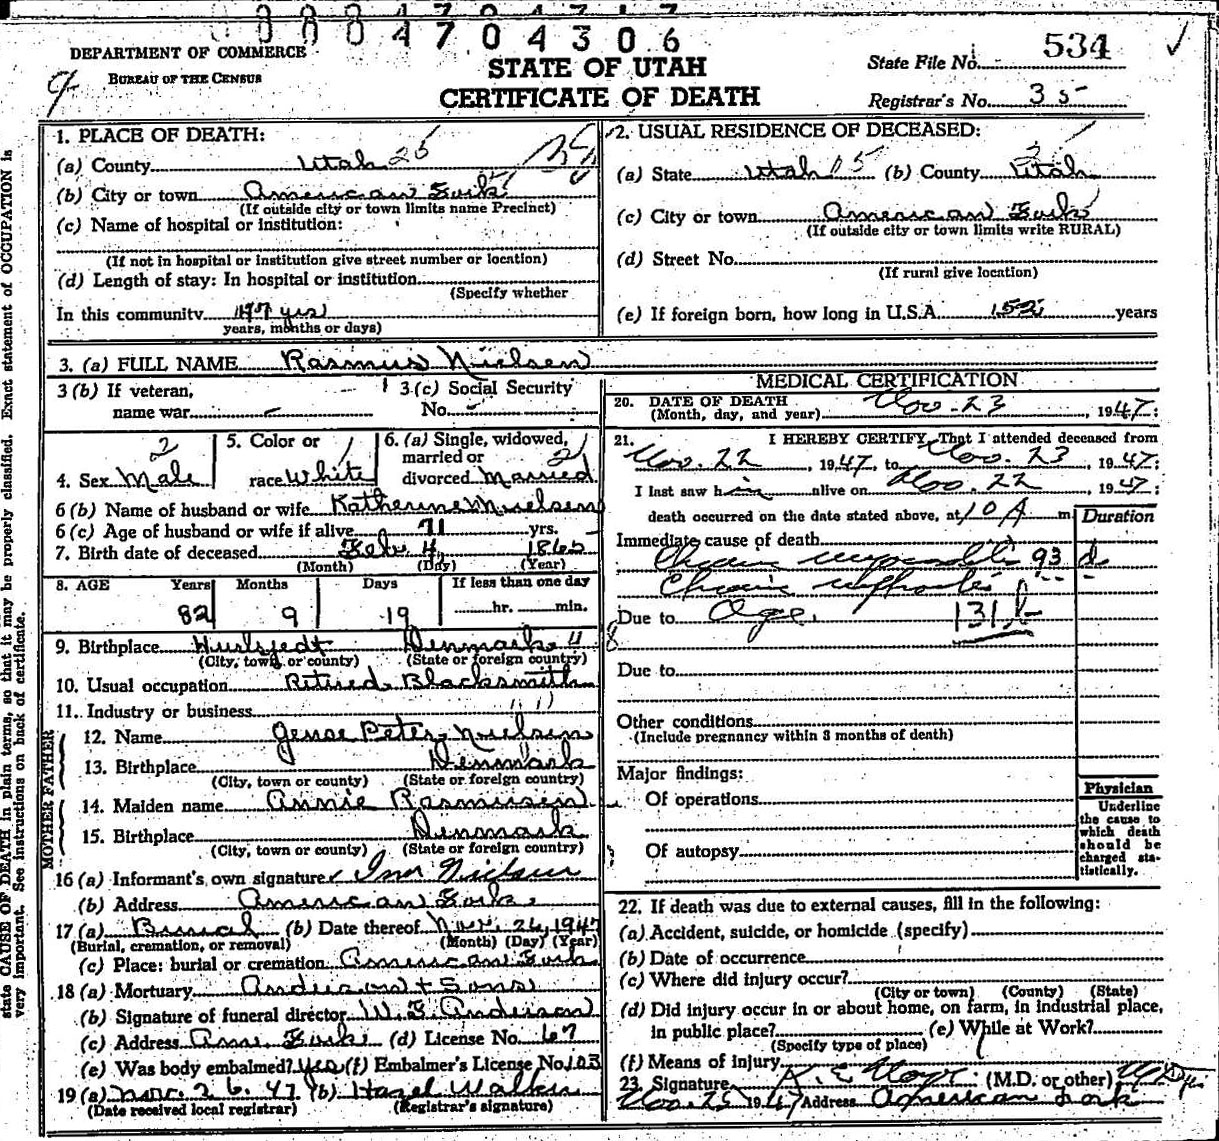 004704306
DEPARTMENT OF COMMERCE
BUREAU OF THE CENSUS
STATE OF UTAH
CERTIFICATE OF DEATH
State File No. 534
Registrar's No. 35
1. PLACE OF DEATH:
(a) County Utah 25
(b) City or town American Fork
(If outside city or town limits name Precinct)
(c) Name of hospital or institution:
(If not in hospital or institution give street number or location)
(d) Length of stay: In hospital or institution
(Specify whether
In this community 47 yrs
years, months or days)
2. USUAL RESIDENCE OF DECEASED:
(a) State Utah 15 (b) County Utah
(c) City or town American Fork
(If outside city or town limits write RURAL)
(d) Street No.
(If rural give location)
(e) If foreign born, how long in U.S.A. 52 years
3. (a) FULL NAME Rasmus Nielsen
3 (b) If veteran,
name war -
3 (c) Social Security
No. -
4. Sex Male 2
5. Color or
race White 1
6. (a) Single, widowed,
married or
divorced Married 2
6 (b) Name of husband or wife Katherine Nielsen
6 (c) Age of husband or wife if alive 71 yrs.
7. Birth date of deceased Feb. 4, 1865
(Month) (Day) (Year)
8. AGE Years Months Days If less than one day
82 9 19 hr. min.
9. Birthplace Denmark 4
(City, town, or county) (State or foreign country)
10. Usual occupation Retired Blacksmith
11. Industry or business
FATHER
12. Name Jense Peter Nielsen
13. Birthplace Denmark
(City, town or county) (State or foreign country)
MOTHER
14. Maiden name Annie Rasmusen
15. Birthplace Denmark
(City, town or county) (State or foreign country)
16 (a) Informant's own signature Nielsen
(b) Address American Fork.
17 (a) Burial (b) Date thereof Nov. 26, 1947
(Burial, cremation, or removal) (Month) (Day) (Year)
(c) Place: burial or cremation American Fork
18 (a) Mortuary Anderson & Sons
(b) Signature of funeral director W. E. Anderson
(c) Address Ame. Fork (d) License No. 67
(e) Was body embalmed? Yes (f) Embalmer's License No. 103
19 (a) Nov. 26. 47 (b) Hazel Walker
(Date received local registrar) (Registrar's signature)
MEDICAL CERTIFICATION
20. DATE OF DEATH
(Month, day, and year) Nov. 23, 1947:
21. I HEREBY CERTIFY, That I attended deceased from
Nov. 22, 1947, to Nov. 23, 1947:
I last saw him alive on Nov. 22, 1947:
death occurred on the date stated above, at 10 A m
Duration
Immediate cause of death
Chronic myocarditis 93 d
Chronic nephritis
Due to Age. 131 b
Due to
Other conditions
(Include pregnancy within 3 months of death)
Major findings:
Of operations
Of autopsy
Physician
Underline
the cause to
which death
should be
charged sta-
tistically.
22. If death was due to external causes, fill in the following:
(a) Accident, suicide, or homicide (specify)
(b) Date of occurrence
(c) Where did injury occur?
(City or town) (County) (State)
(d) Did injury occur in or about home, on farm, in industrial place,
in public place? (e) While at Work?
(Specify type of place)
(f) Means of injury
23. Signature (M.D. or other)
Nov. 25 1947 Address American Fork
state CAUSE OF DEATH in plain terms, so that it may be properly classified. Exact statement of OCCUPATION is
very important. See instructions on back of certificate.